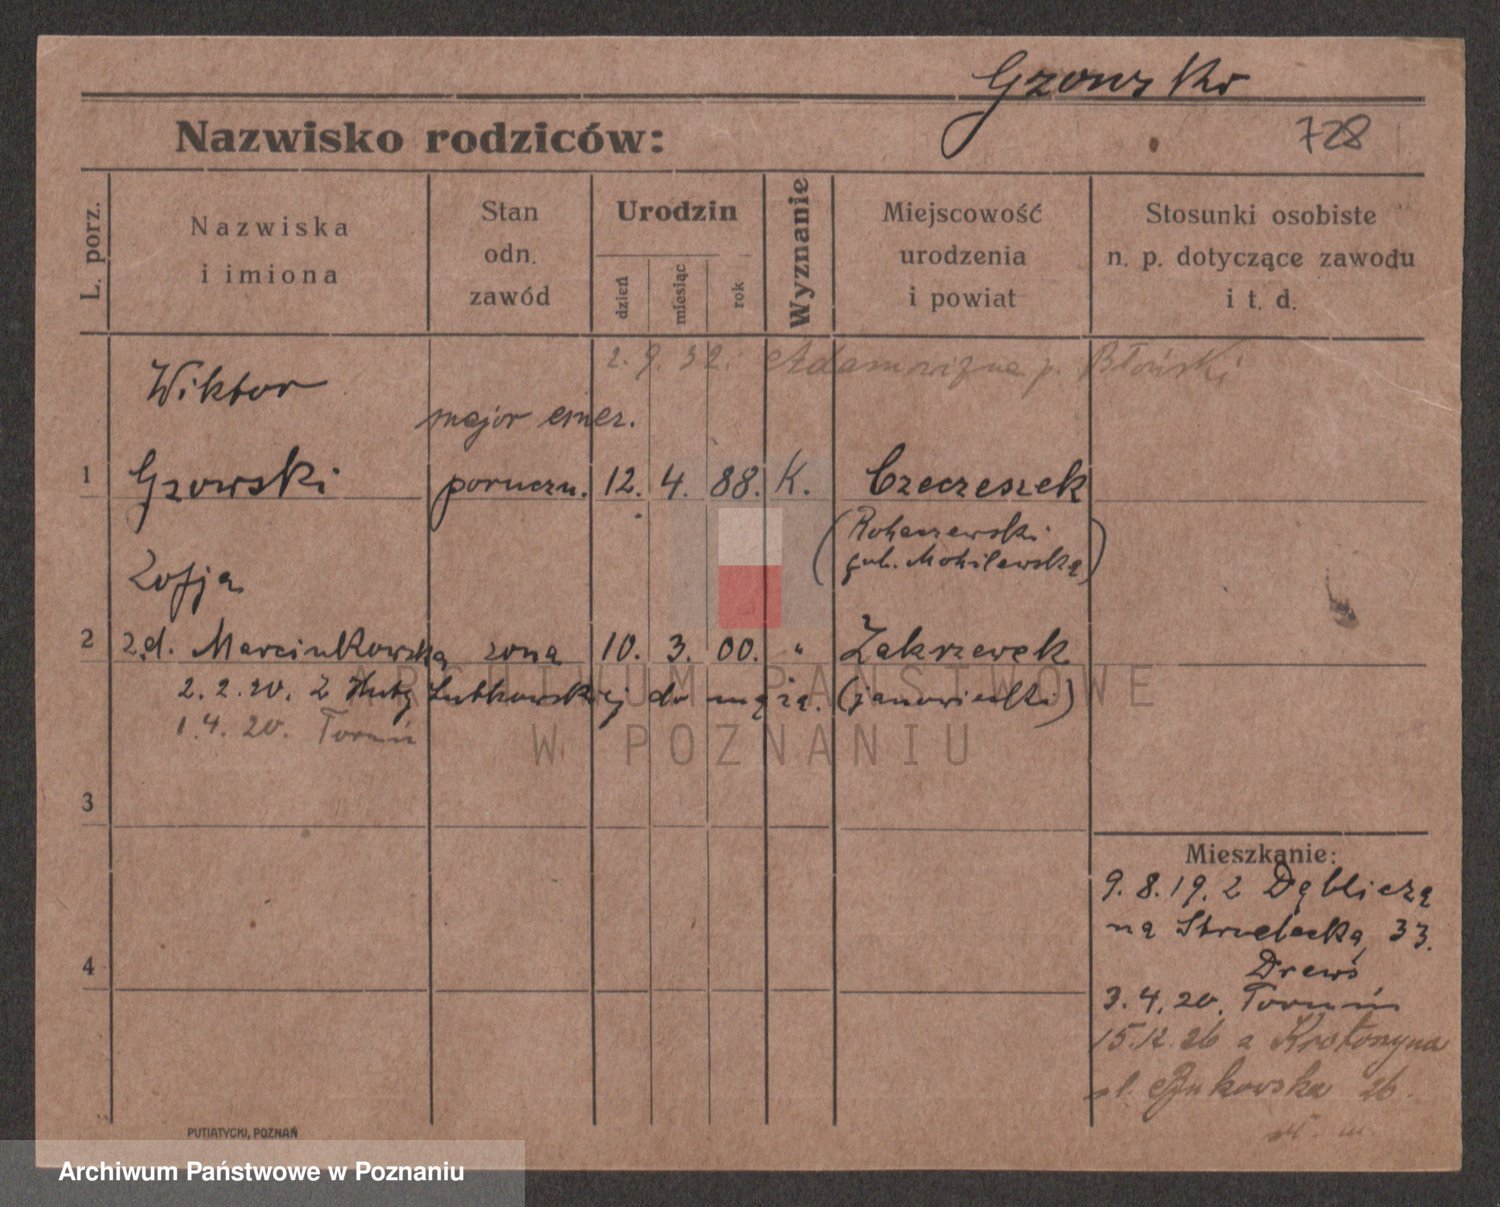 Gzowski
728
Nazwisko rodziców:
L. porz.
Nazwiska
i imiona
Stan
odn.
zawód
Urodzin
dzień
miesiąc
rok
Wyznanie
Miejscowość
urodzenia
i powiat
Stosunki osobiste
n. p. dotyczące zawodu
i t. d.
2. 9. 32. Adamowizna p. Błoński
Wiktor
major emer.
1 Gzowski poruczn. 12. 4. 88. K. Czeczeszek
(Rohaczewski
gub. Mohilewska)
Zofja
2 z.d. Marcinkowska żona 10. 3. 00. " Zakrzewek
2.2.20. z Huty do męża. (janowiecki)
1.4.20. Toruń
3
4
Mieszkanie:
9.8.19. z Dąblicza
na Strzelecką 33.
Drews
3.4.20. Toruń
15.12.26 z Krotoszyna
ul. Bukowska 26.
PUTIATYCKI, POZNAŃ
ARCHIWUM PAŃSTWOWE
W POZNANIU
Archiwum Państwowe w Poznaniu